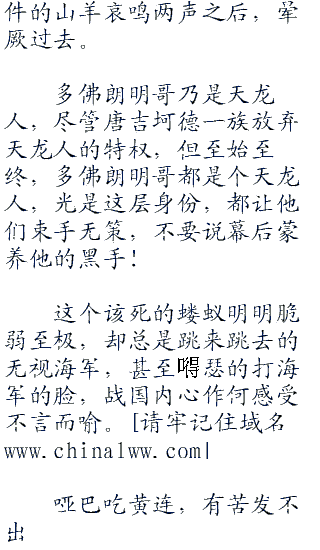 件的山羊哀鸣两声之后，晕
厥过去。
多佛朗明哥乃是天龙
人，尽管唐吉坷德一族放弃
天龙人的特权，但至始至
终，多佛朗明哥都是个天龙
人，光是这层身份，都让他
们束手无策，不要说幕后蒙
养他的黑手！
这个该死的蝼蚁明明脆
弱至极，却总是跳来跳去的
无视海军，甚至嘚瑟的打海
军的脸，战国内心作何感受
不言而喻。[请牢记住域名
www.china1ww.com|
哑巴吃黄连，有苦发不
出